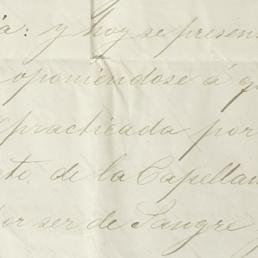 ia: y hoy se presen
oponiéndose á q
practicada por
to de la Capellan
or ser de Sangre